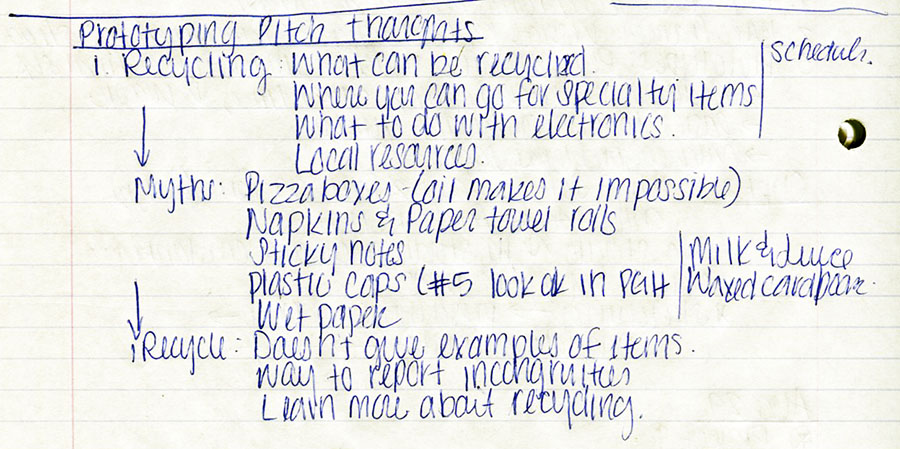 Prototyping Pitch thoughts
1. Recycling: What can be recycled.
Where you can go for specialty items
What to do with electronics.
Local resources.
Schedule.
Myths: Pizza boxes - (oil makes it impossible)
Napkins & Paper towel rolls
Sticky notes
Plastic caps (#5 look ok in
Wet paper
Milk & Juice
Waxed cardboar
iRecycle: Doesn't give examples of items.
Way to report incongruities
Learn more about recycling.